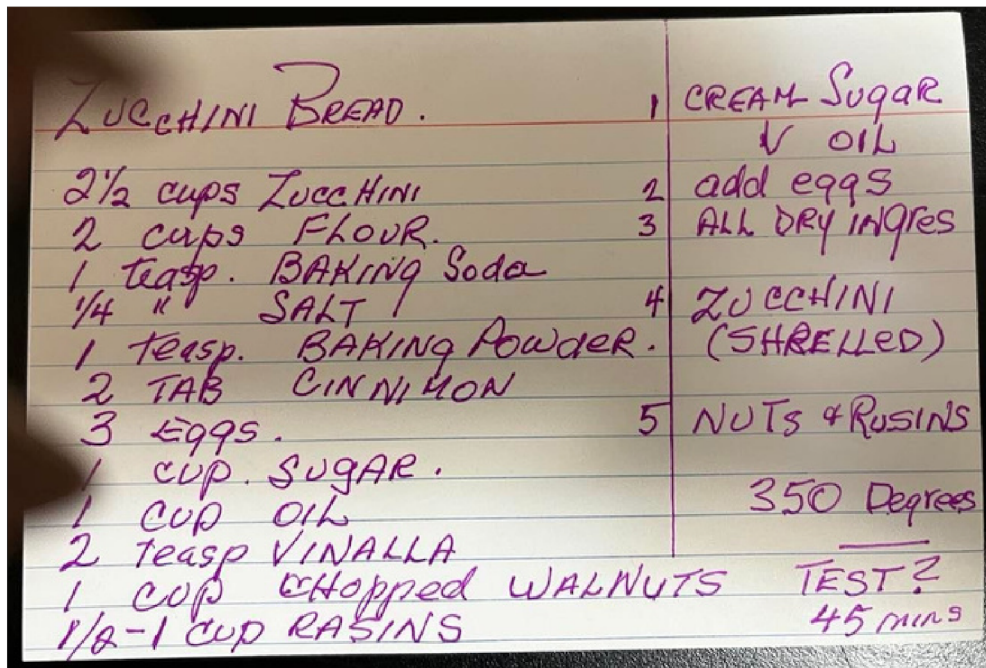 ZUCCHINI BREAD.
2 1/2 cups ZUCCHINI
2 cups FLOUR.
1 teasp. BAKING Soda
1/4 " SALT
1 teasp. BAKING POWDER.
2 TAB CINNIMON
3 Eggs.
1 cup. SUGAR.
1 CUP OIL
2 teasp VINALLA
1 CUP CHopped WALNUTS
1/2-1 CUP RASINS
1 CREAM Sugar
OIL
2 add eggs
3 ALL DRY INgres
4 ZUCCHINI
(SHRELLED)
5 NUTS & RUSINS
350 Degrees
TEST?
45 mins